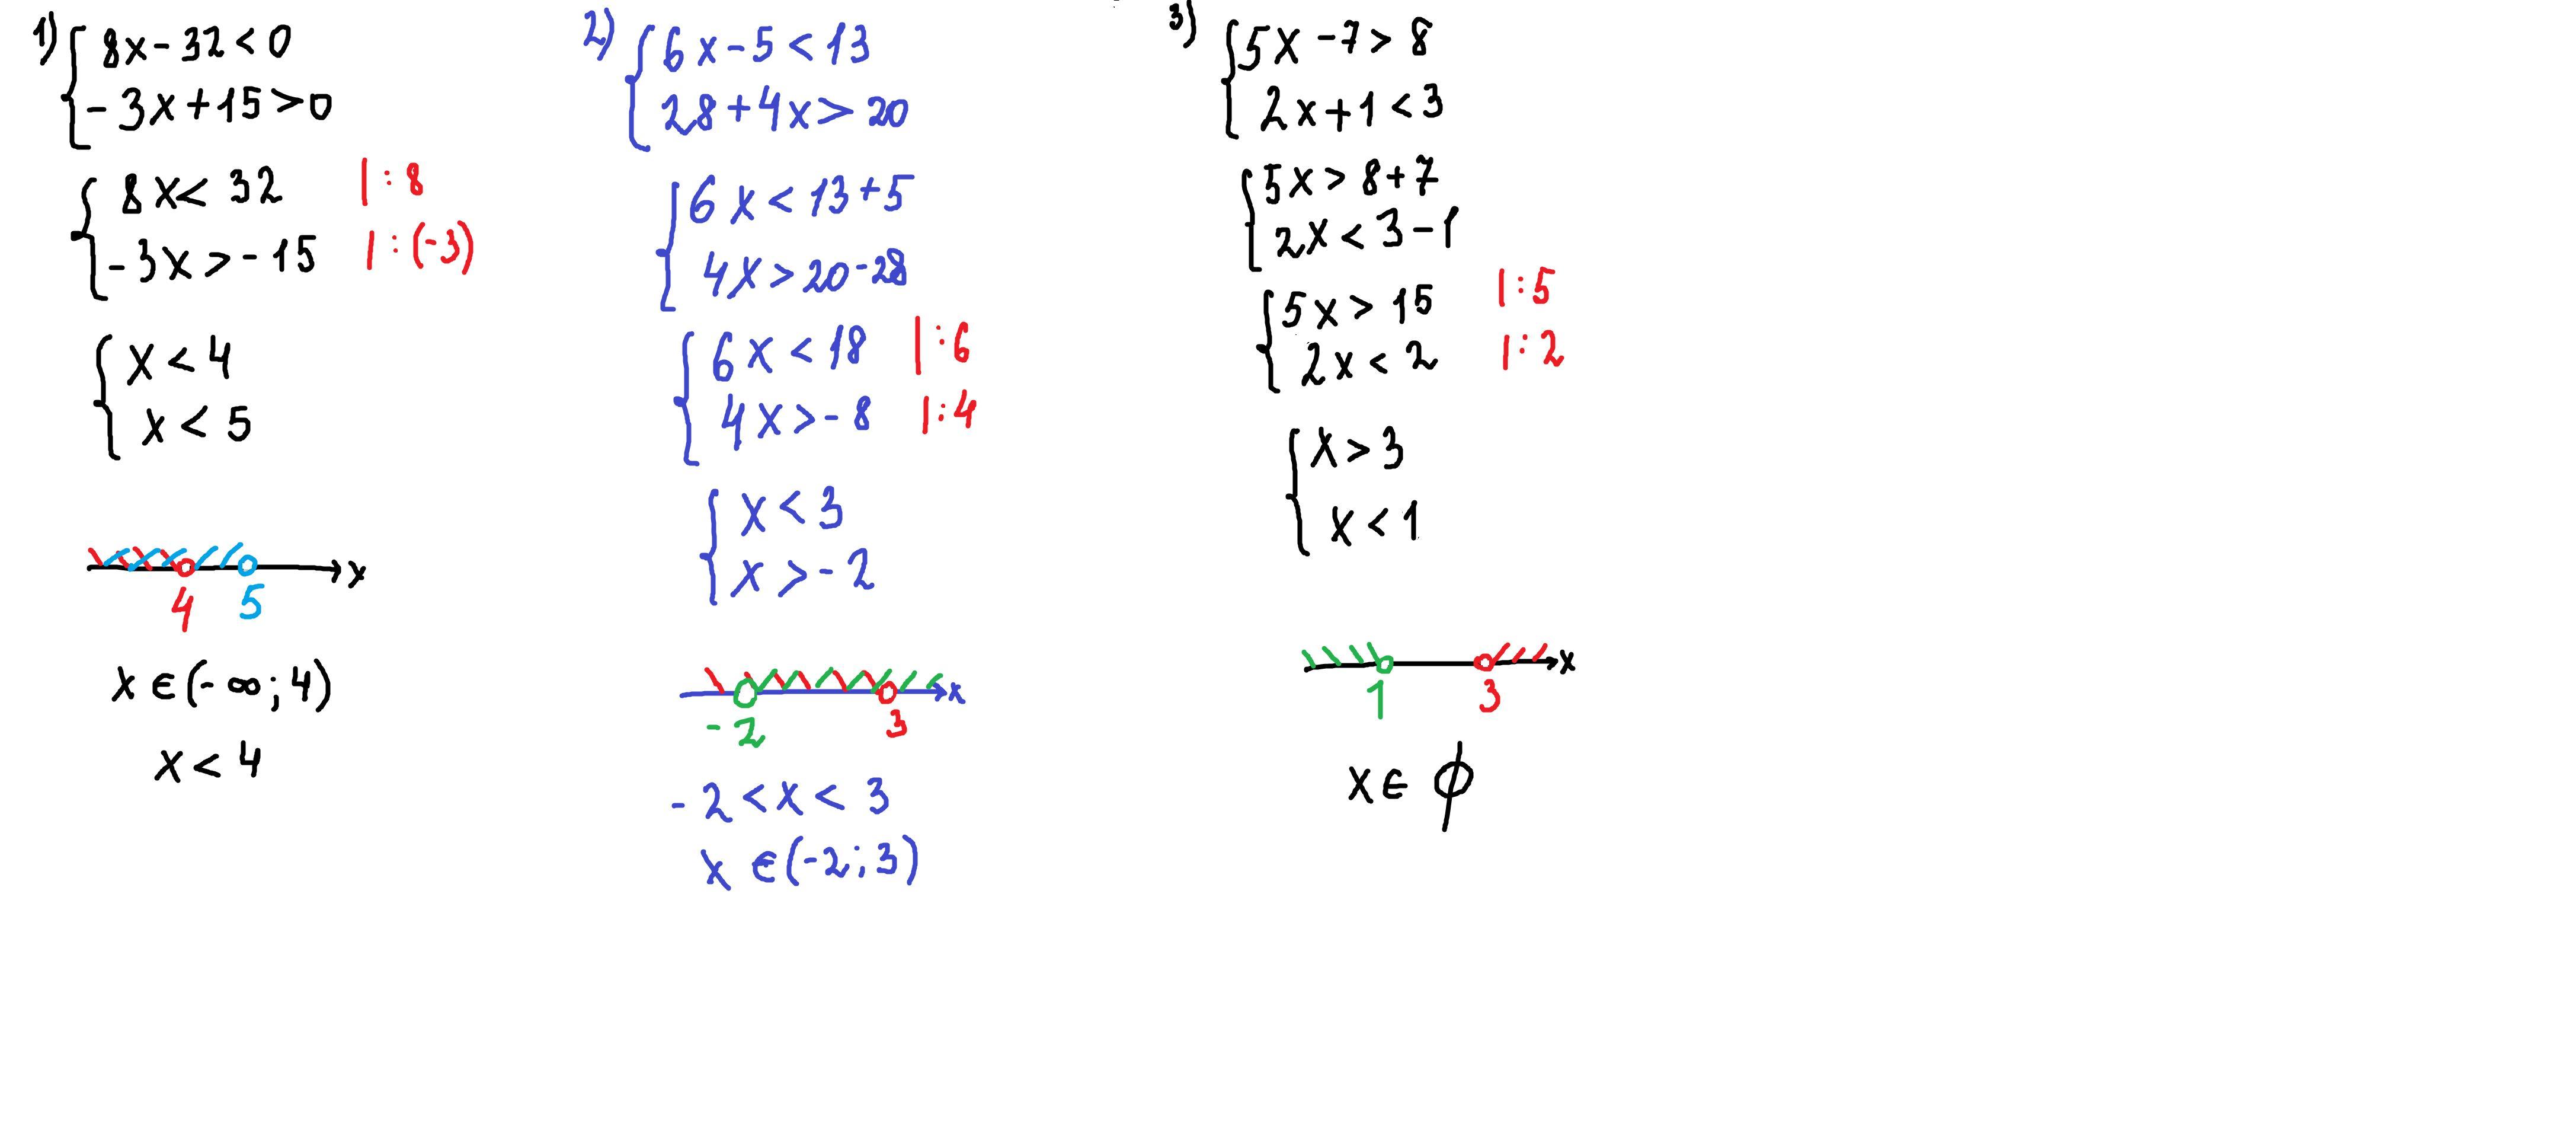 1)
8x - 32 < 0
- 3x + 15 > 0
8x < 32 | : 8
- 3x > - 15 | : (-3)
x < 4
x < 5
x
4 5
x ∈ (- ∞; 4)
x < 4
2)
6x - 5 < 13
28 + 4x > 20
6x < 13 + 5
4x > 20 - 28
6x < 18 | : 6
4x > - 8 | : 4
x < 3
x > - 2
x
- 2 3
- 2 < x < 3
x ∈ (-2; 3)
3)
5x - 7 > 8
2x + 1 < 3
5x > 8 + 7
2x < 3 - 1
5x > 15 | : 5
2x < 2 | : 2
x > 3
x < 1
x
1 3
x ∈ ∅